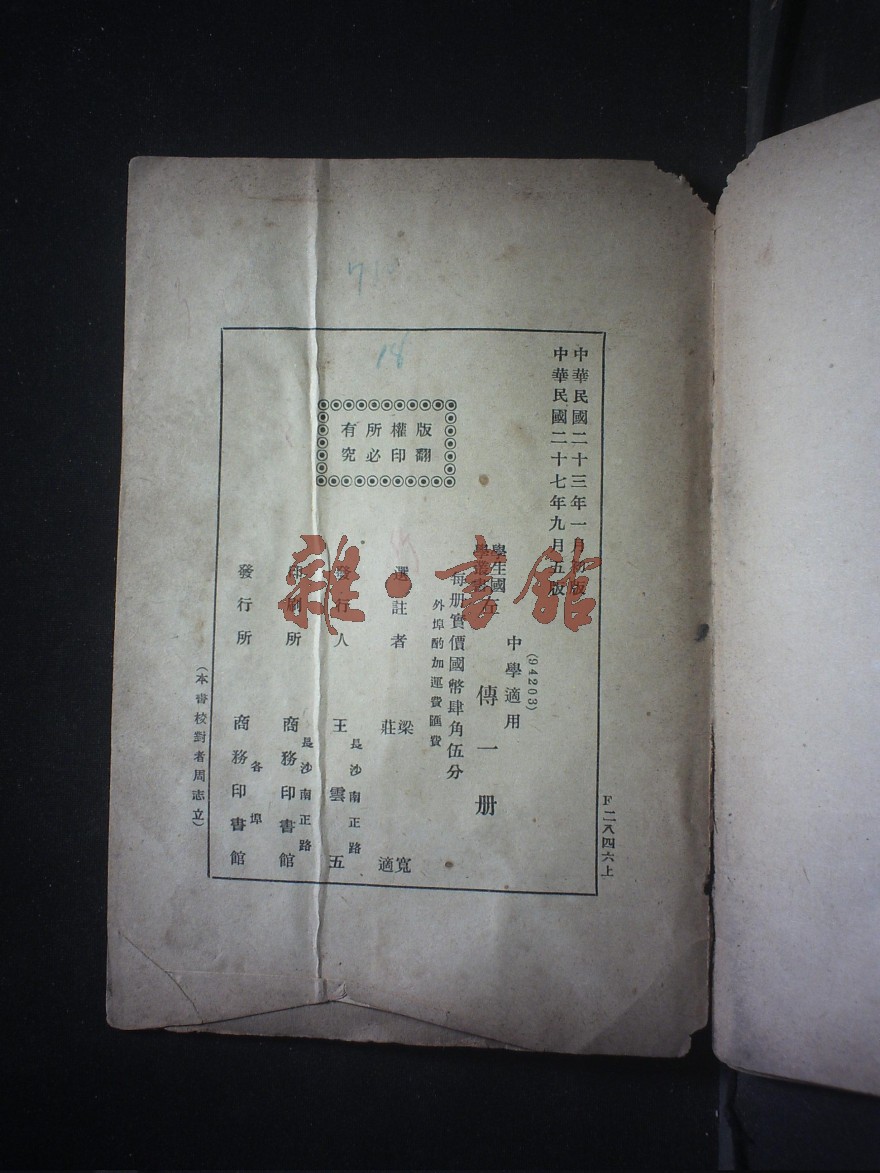 中華民國二十三年一月初版
中華民國二十七年九月五版
(94203)
中學適用
學生國
學叢書 左傳一册
每册實價國幣肆角伍分
外埠酌加運費匯費
選註者 梁寬
莊適
發行人 王雲五
長沙南正路
印刷所 商務印書館
長沙南正路
發行所 商務印書館
各埠
版權所有
翻印必究
(本書校對者周志立)
F二八四六上
18
雜·書館